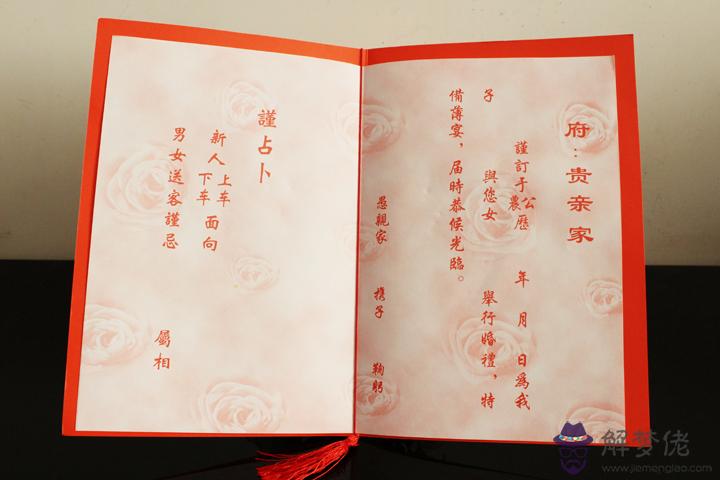 府：贵亲家
謹訂于公農歷 年 月 日為我
子 與您女 舉行婚禮，特
備薄宴，届時恭候光臨。
愚親家 携子 鞠躬
謹占卜
新人上车下车面向
男女送客謹忌
屬相
解梦佬
www.jiemenglao.com